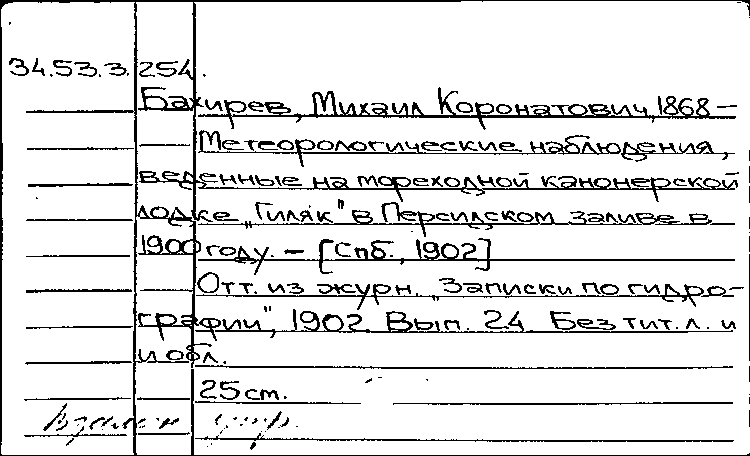 34.53.3.254.
Бахирев, Михаил Коронатович, 1868 –
Метеорологические наблюдения,
веденные на мореходной канонерской
лодке „Гиляк" в Персидском заливе в
1900 году. – [Спб., 1902]
Отт. из журн. „Записки по гидро-
графии", 1902. Вып. 24. Без тит. л. и
и обл.
25 cm.
Взамен